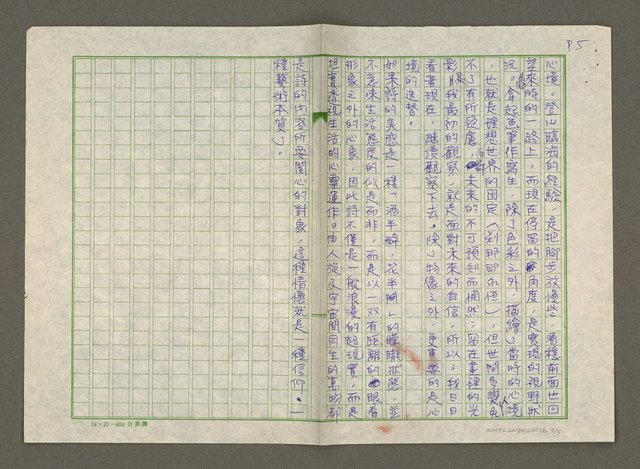 P5
心境。登山臨海的經驗，是把腳步放慢些，看穩前面也回
望來時的一路上，而現在停留的角度，是實現的視野狀
況。拿起画筆作寫生，除了色彩之外，描繪當時的心境
，也就是理想世界的固定（剎那即永恒），但世間多變免
不了有所疑慮，未來的不可預知而惘然；留在畫裡的光
影，我最初的觀察，就是面對未來的自信，所以；我日日
看著現在，繼續觀察下去。除了物像之外，更重要的是心
境的
如果詩的美感是一種「酒半醉，花半開」的朦朧狀態，並
不意味生活態度的似是而非，而是以一双有距離的眼看
形象之外的心象，因此詩不僅是一般浪漫的超現實，而是
坦直
是詩的內容所要關心的對象，這種情懷就是一種信仰，一
種藝術本質」。
24×25=600